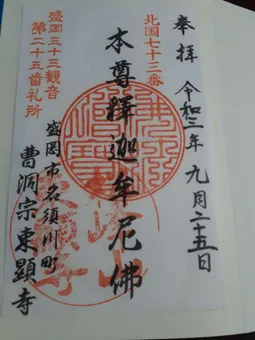 奉拝
令和二年九月二十五日
北国七十三番
本尊釋迦牟尼佛
盛岡三十三観音
第二十五番札所
盛岡市名須川町
曹洞宗東顕寺